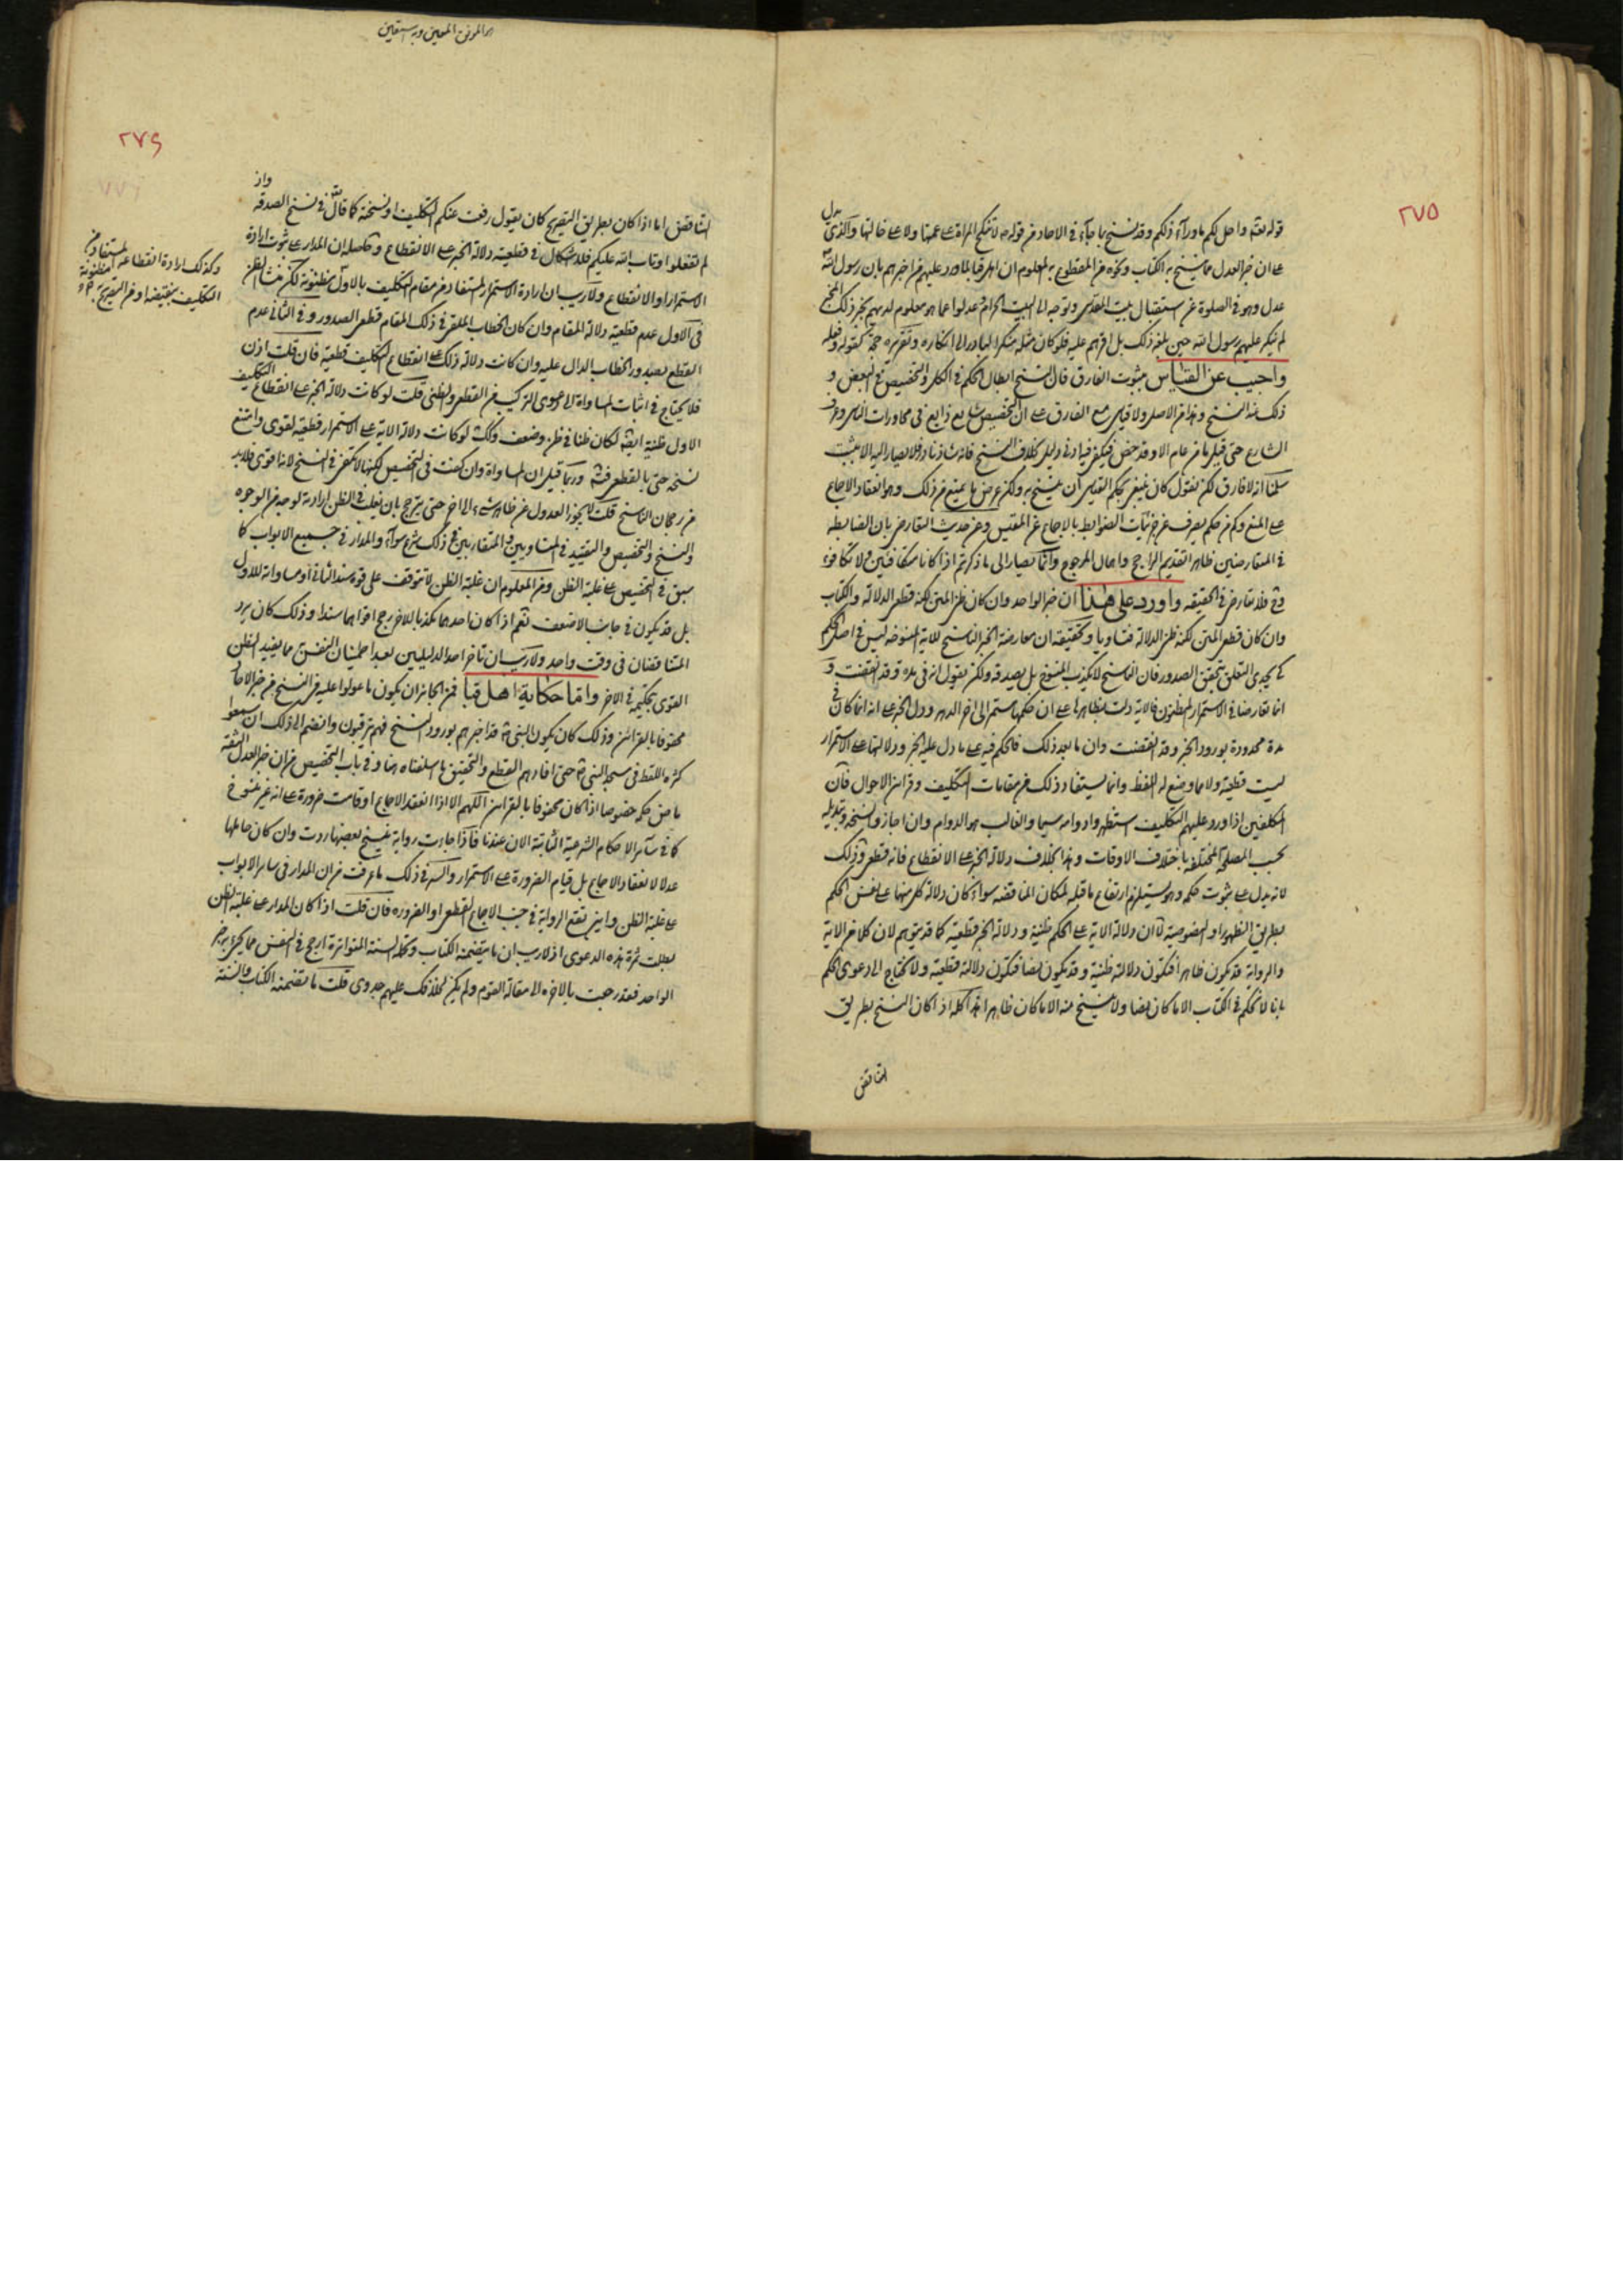 ٢٧٥
قوله تعه واحل لكم ما ورآء ذلكم وقد نسخ بما جآء في الاحاد من قوله ص لا تنكح المراة على عمتها ولا على خالتها والذي يدل
على ان خبر العدل مما ينسخ به الكتاب ونحوه من المقطوع به المعلوم ان اهل قبا لما ورد عليهم من اخبرهم بان رسول الله
عدل وهو في الصلوة عن استقبال بيت المقدس وتوجه الى البيت الحرام عدلوا عما هو معلوم لديهم بخبر ذلك المخبر
لم ينكر عليهم رسول الله حين بلغه ذلك بل اقرهم عليه فلو كان مثله منكرا لبادر الى انكاره وتقريره حجة كقوله وفعله
واجيب عن القياس بثبوت الفارق فان النسخ ابطال الحكم في الكل والتخصيص في البعض و
ذلك منه النسخ وهذا من الاصل ولا قياس مع الفارق على ان التخصيص شايع ذايع في محاورات الناس وعرف
الشارع حتى قيل ما من عام الا وقد خص فيكفي فيه ادنى دليل بخلاف النسخ فانه شاذ نادر فلا يصار اليه الا بثبت
سلمنا ان لا فارق لكن نقول كان ينبغي بحكم القياس ان ينسخ به ولكن عرض ما يمنع من ذلك وهو انعقاد الاجماع
على المنع وكم من حكم يصرف عن جزئيات الضوابط بالاجماع عن المقتبس وعن حديث التعارض بان الضابط
في المتعارضين ظاهرا تقديم الراجح واهمال المرجوح وانما يصار الى ما ذكرتم اذا كانا متكافئين ولا تكافؤ
وح فلا تعارض في الحقيقة واورد على هذا ان خبر الواحد وان كان ظني المتن لكنه قطعي الدلالة والكتاب
وان كان قطعي المتن لكنه ظني الدلالة فتساويا وتحقيقه ان معارضة الخبر الناسخ للاية المنسوخة ليس في اصل الحكم
كي يجدي التعلق بتحقق الصدور فان الناسخ لا يكذب المنسوخ بل يصدقه ولكن يقول انه في مدة وقد انقضت و
انما تعارضا في الاستمرار المظنون فالاية دلت بظاهرها على ان حكمها مستمر الى اخر الدهر ودل الخبر على انه انما كان في
مدة محدودة بورود الخبر وقد انقضت وان ما بعد ذلك فالحكم فيه على ما دل عليه الخبر ودلالتها على الاستمرار
ليست قطعية ولا مما وضع له اللفظ وانما يستفاد ذلك من مقامات التكليف وقراين الاحوال فان
المكلفين اذا ورد عليهم التكليف استظهروا دوامه سيما والغالب هو الدوام وان اجازوا نسخه وتبديله
بحسب المصلحة المختلفة باختلاف الاوقات وهذا بخلاف دلالة الخبر على الانقطاع فانه قطعي وذلك
لانه يدل على ثبوت حكم وهو يستلزم ارتفاع ما قبله لمكان المناقضة سواء كان دلالة كل منهما على نفس الحكم
بطريق الظهور او النصوصية لا ان دلالة الاية على الحكم ظنية ودلالة الخبر قطعية كما قد يتوهم لان كلا من الاية
والرواية قد يكون ظاهرا فتكون دلالة ظنية وقد يكون نصا فتكون دلالة قطعية ولا نحتاج الى دعوى الحكم
بانا لا نحكم في الكتاب الا ما كان نصا ولا ننسخ منه الا ما كان ظاهرا هذا كله اذا كان النسخ بطريق
التناقض
٢٧٦
التناقض اما اذا كان بطريق التصريح كان يقول رفعت عنكم التكليف او نسخته كما قال الله في نسخ الصدقة واذ
لم تفعلوا وتاب الله عليكم فلا اشكال في قطعية دلالة الخبر على الانقطاع وحاصله ان المدار على ثبوت ارادة
الاستمرار او الانقطاع ولا ريب ان ارادة الاستمرار المستفاد من مقام التكليف بالاول مظنونة لكن منشا الظن
في الاول عدم قطعية دلالة المقام وان كان الخطاب الملقى في ذلك المقام قطعي الصدور وفي الثاني عدم
القطع بصدور الخطاب الدال عليه وان كانت دلالة ذلك على انقطاع التكليف قطعية فان قلت اذن
فلا يحتاج في اثبات المساواة الى دعوى التركيب من القطعي والظني قلت لو كانت دلالة الخبر على انقطاع التكليف
الاول ظنية ايضا لكان ظنا في ظن وضعف ولكن لو كانت دلالة الاية على الاستمرار قطعية لقوى وامتنع
نسخه حتى بالقطعي وربما قيل ان المساواة وان كفت في التخصيص لكنها لا تكفي في النسخ لانه اقوى فلابد
من رجحان الناسخ قلت لا يجوز العدول عن ظاهر شيء الى اخر حتى يترجح بان يغلب في الظن ارادته لوجه من الوجوه
والنسخ والتخصيص والتقييد في المتساويين والمتقاربين في ذلك شرع سواء والمدار في جميع الابواب كما
سبق في التخصيص على غلبة الظن ومن المعلوم ان غلبة الظن لا تتوقف على قوة سند الثاني او مساواته للاول
بل قد يكون في جانب الاضعف نعم اذا كان احدهما مكذبا للاخر رجح اقواهما سندا وذلك كان يرد
المتناقضان في وقت واحد ولا ريب ان تاخر احد الدليلين بعد اطمينان النفس مما يفيد الظن
القوى بحكمية الاخر واما حكاية اهل قبا فمن الجائز ان يكون ما عولوا عليه في النسخ من خبر الاحاد
محفوفا بالقرائن وذلك كان يكون النبي ص قد اخبرهم بورود النسخ فهم يترقبون وانضم الى ذلك ان سمعوا
كثرة اللغط في مسجد النبي ص حتى افادهم القطع والتحقيق ما اسلفناه هنا وفي باب التخصيص من ان خبر العدل الثقة
ماض حكمه خصوصا اذا كان محفوفا بالقراين اللهم الا اذا انعقد الاجماع او قامت ضرورة على انه غير منسوخ
كما في سآئر الاحكام الشرعية الثابتة الان عندنا فاذا جاءت رواية بنسخ بعضها ردت وان كان حاملها
عدلا لانعقاد الاجماع بل قيام الضرورة على الاستمرار والسر في ذلك ما عرفت من ان المدار في ساير الابواب
على غلبة الظن واين تقع الرواية في جنب الاجماع القطعي او الضرورة فان قلت اذا كان المدار على غلبة الظن
بطلت ثمرة هذه الدعوى اذ لا ريب ان ما يتضمنه الكتاب وكذا السنة المتواترة ارجح في النفس مما يجيء به خبر
الواحد فقد رجعت بالاخرة الى مقالة القوم ولم يكن لخلافك عليهم جدوى قلت ما تضمنه الكتاب والسنة
وكذلك ارادة الانقطاع المستفاد من
التكليف بنقيضه او من التصريح مظنونة